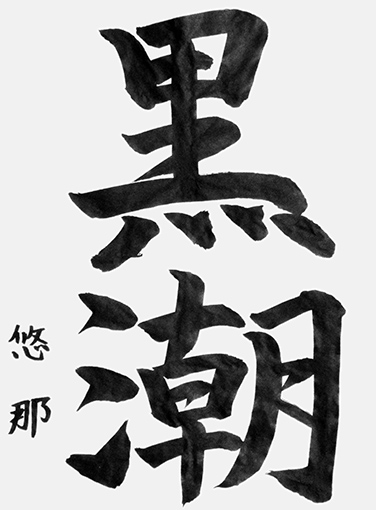 黒潮
悠那